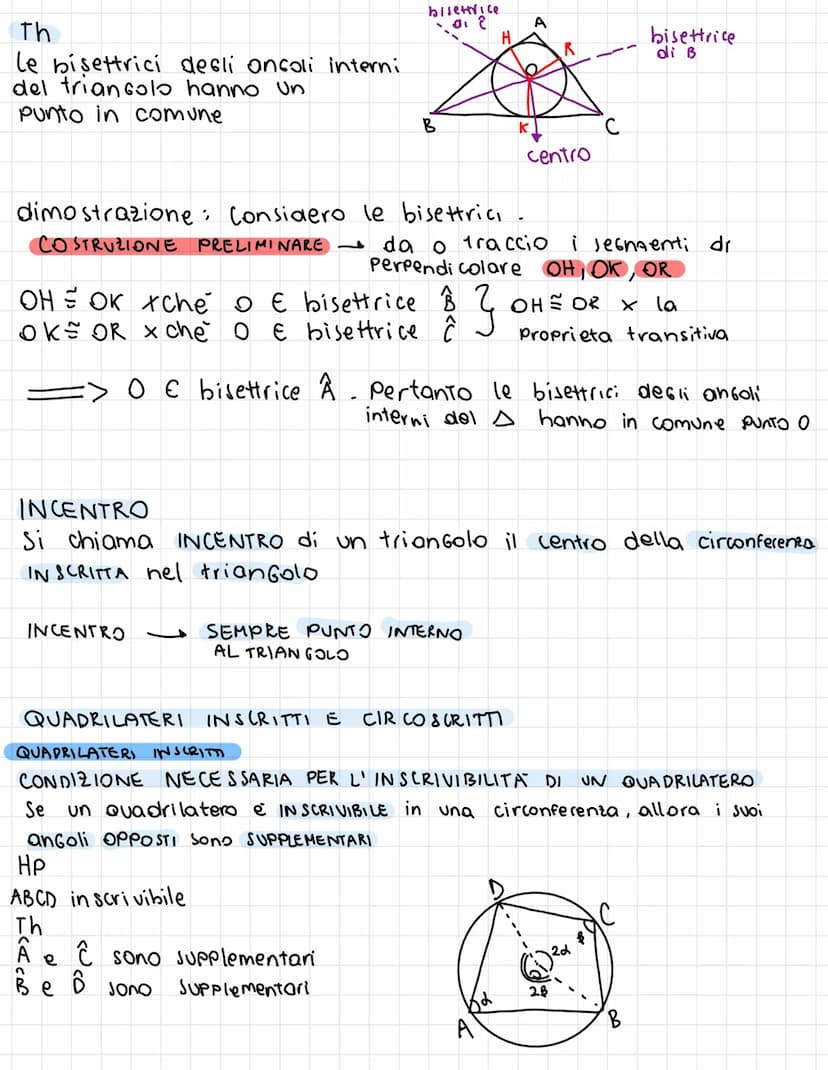 Th
le bisettrici degli angoli interni
del triangolo hanno un
punto in comune
bisettrice
di Ĉ
A
H
R
O
bisettrice
di B
B
K
C
centro
dimostrazione: Considero le bisettrici.
COSTRUZIONE PRELIMINARE → da O traccio i segmenti di
perpendicolare OH, OK, OR
OH ≅ OK xché O ∈ bisettrice B̂ } OH ≅ OR x la
OK ≅ OR xché O ∈ bisettrice Ĉ } proprieta transitiva
=> O ∈ bisettrice Â. Pertanto le bisettrici degli angoli
interni del △ hanno in comune PUNTO O
INCENTRO
Si chiama INCENTRO di un triangolo il centro della circonferenza
INSCRITTA nel triangolo
INCENTRO → SEMPRE PUNTO INTERNO
AL TRIANGOLO
QUADRILATERI INSCRITTI E CIRCOSCRITTI
QUADRILATERI INSCRITTI
CONDIZIONE NECESSARIA PER L'INSCRIVIBILITÀ DI UN QUADRILATERO
Se un quadrilatero è INSCRIVIBILE in una circonferenza, allora i suoi
angoli OPPOSTI sono SUPPLEMENTARI
Hp
ABCD inscrivibile
Th
Â e Ĉ sono supplementari
B̂ e D̂ sono supplementari
D
C
β
2α
2β
α
A
B